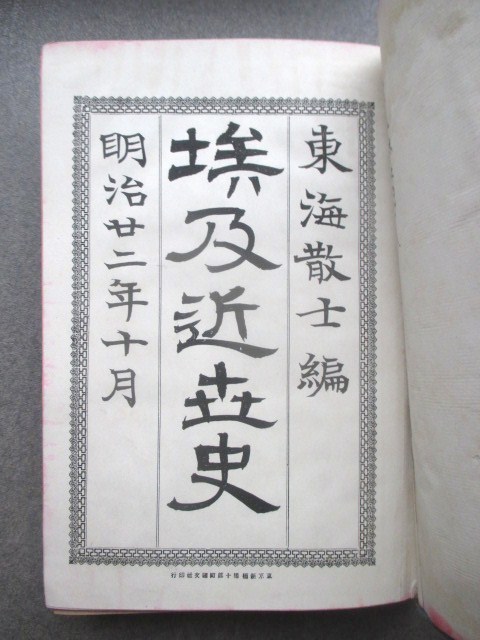 東海散士編
埃及近世史
明治廿二年十月